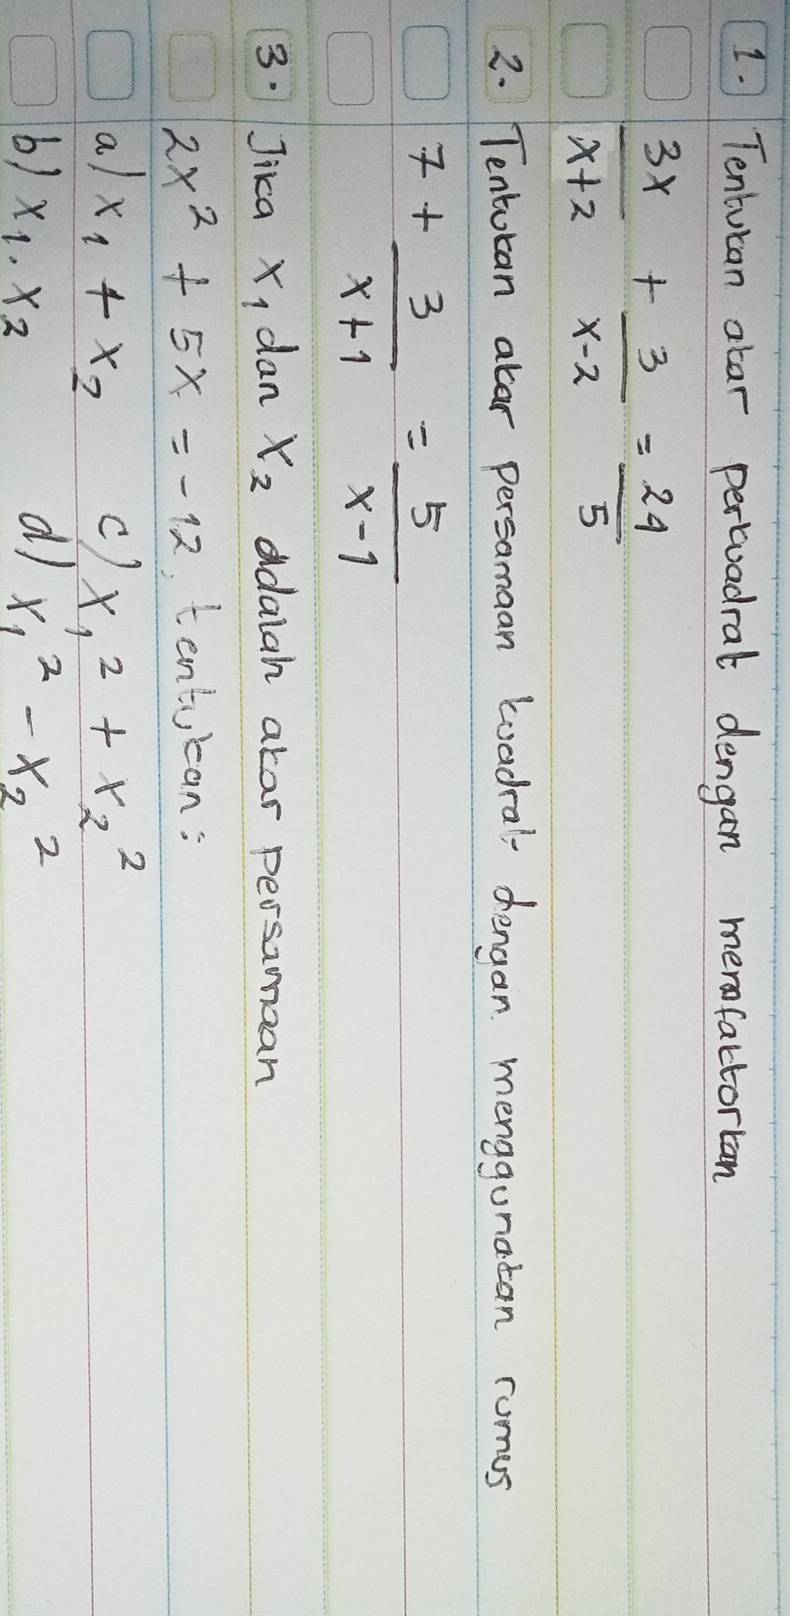 1. Tentukan akar perkuadrat dengan memfaktorkan
3x + 3 = 24
x+2 x-2 5
2. Tentukan akar persamaan kuadrat dengan menggunakan rumus
7 + 3 = 5
x+1 x-1
3. Jika x₁ dan x₂ adalah akar persamaan
2x² + 5x = -12, tentukan:
a) x₁ + x₂ c) x₁² + x₂²
b) x₁. x₂ d) x₁² - x₂²